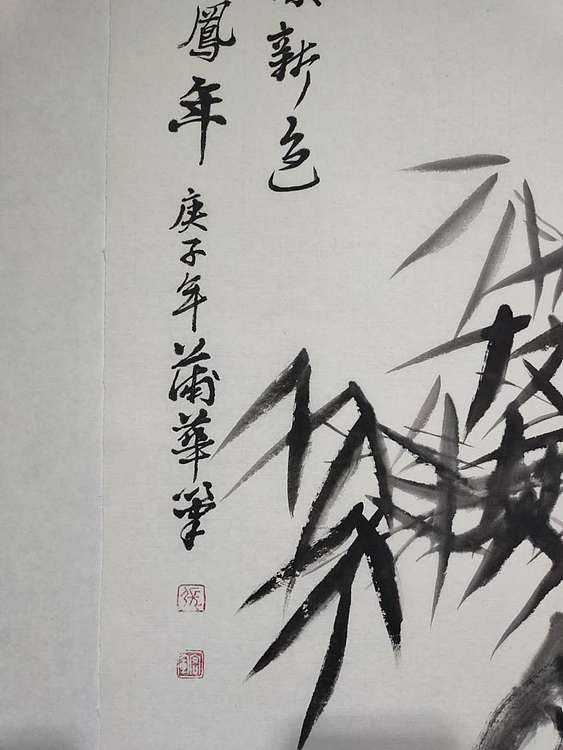 新色
鳳年 庚子年蒲華筆